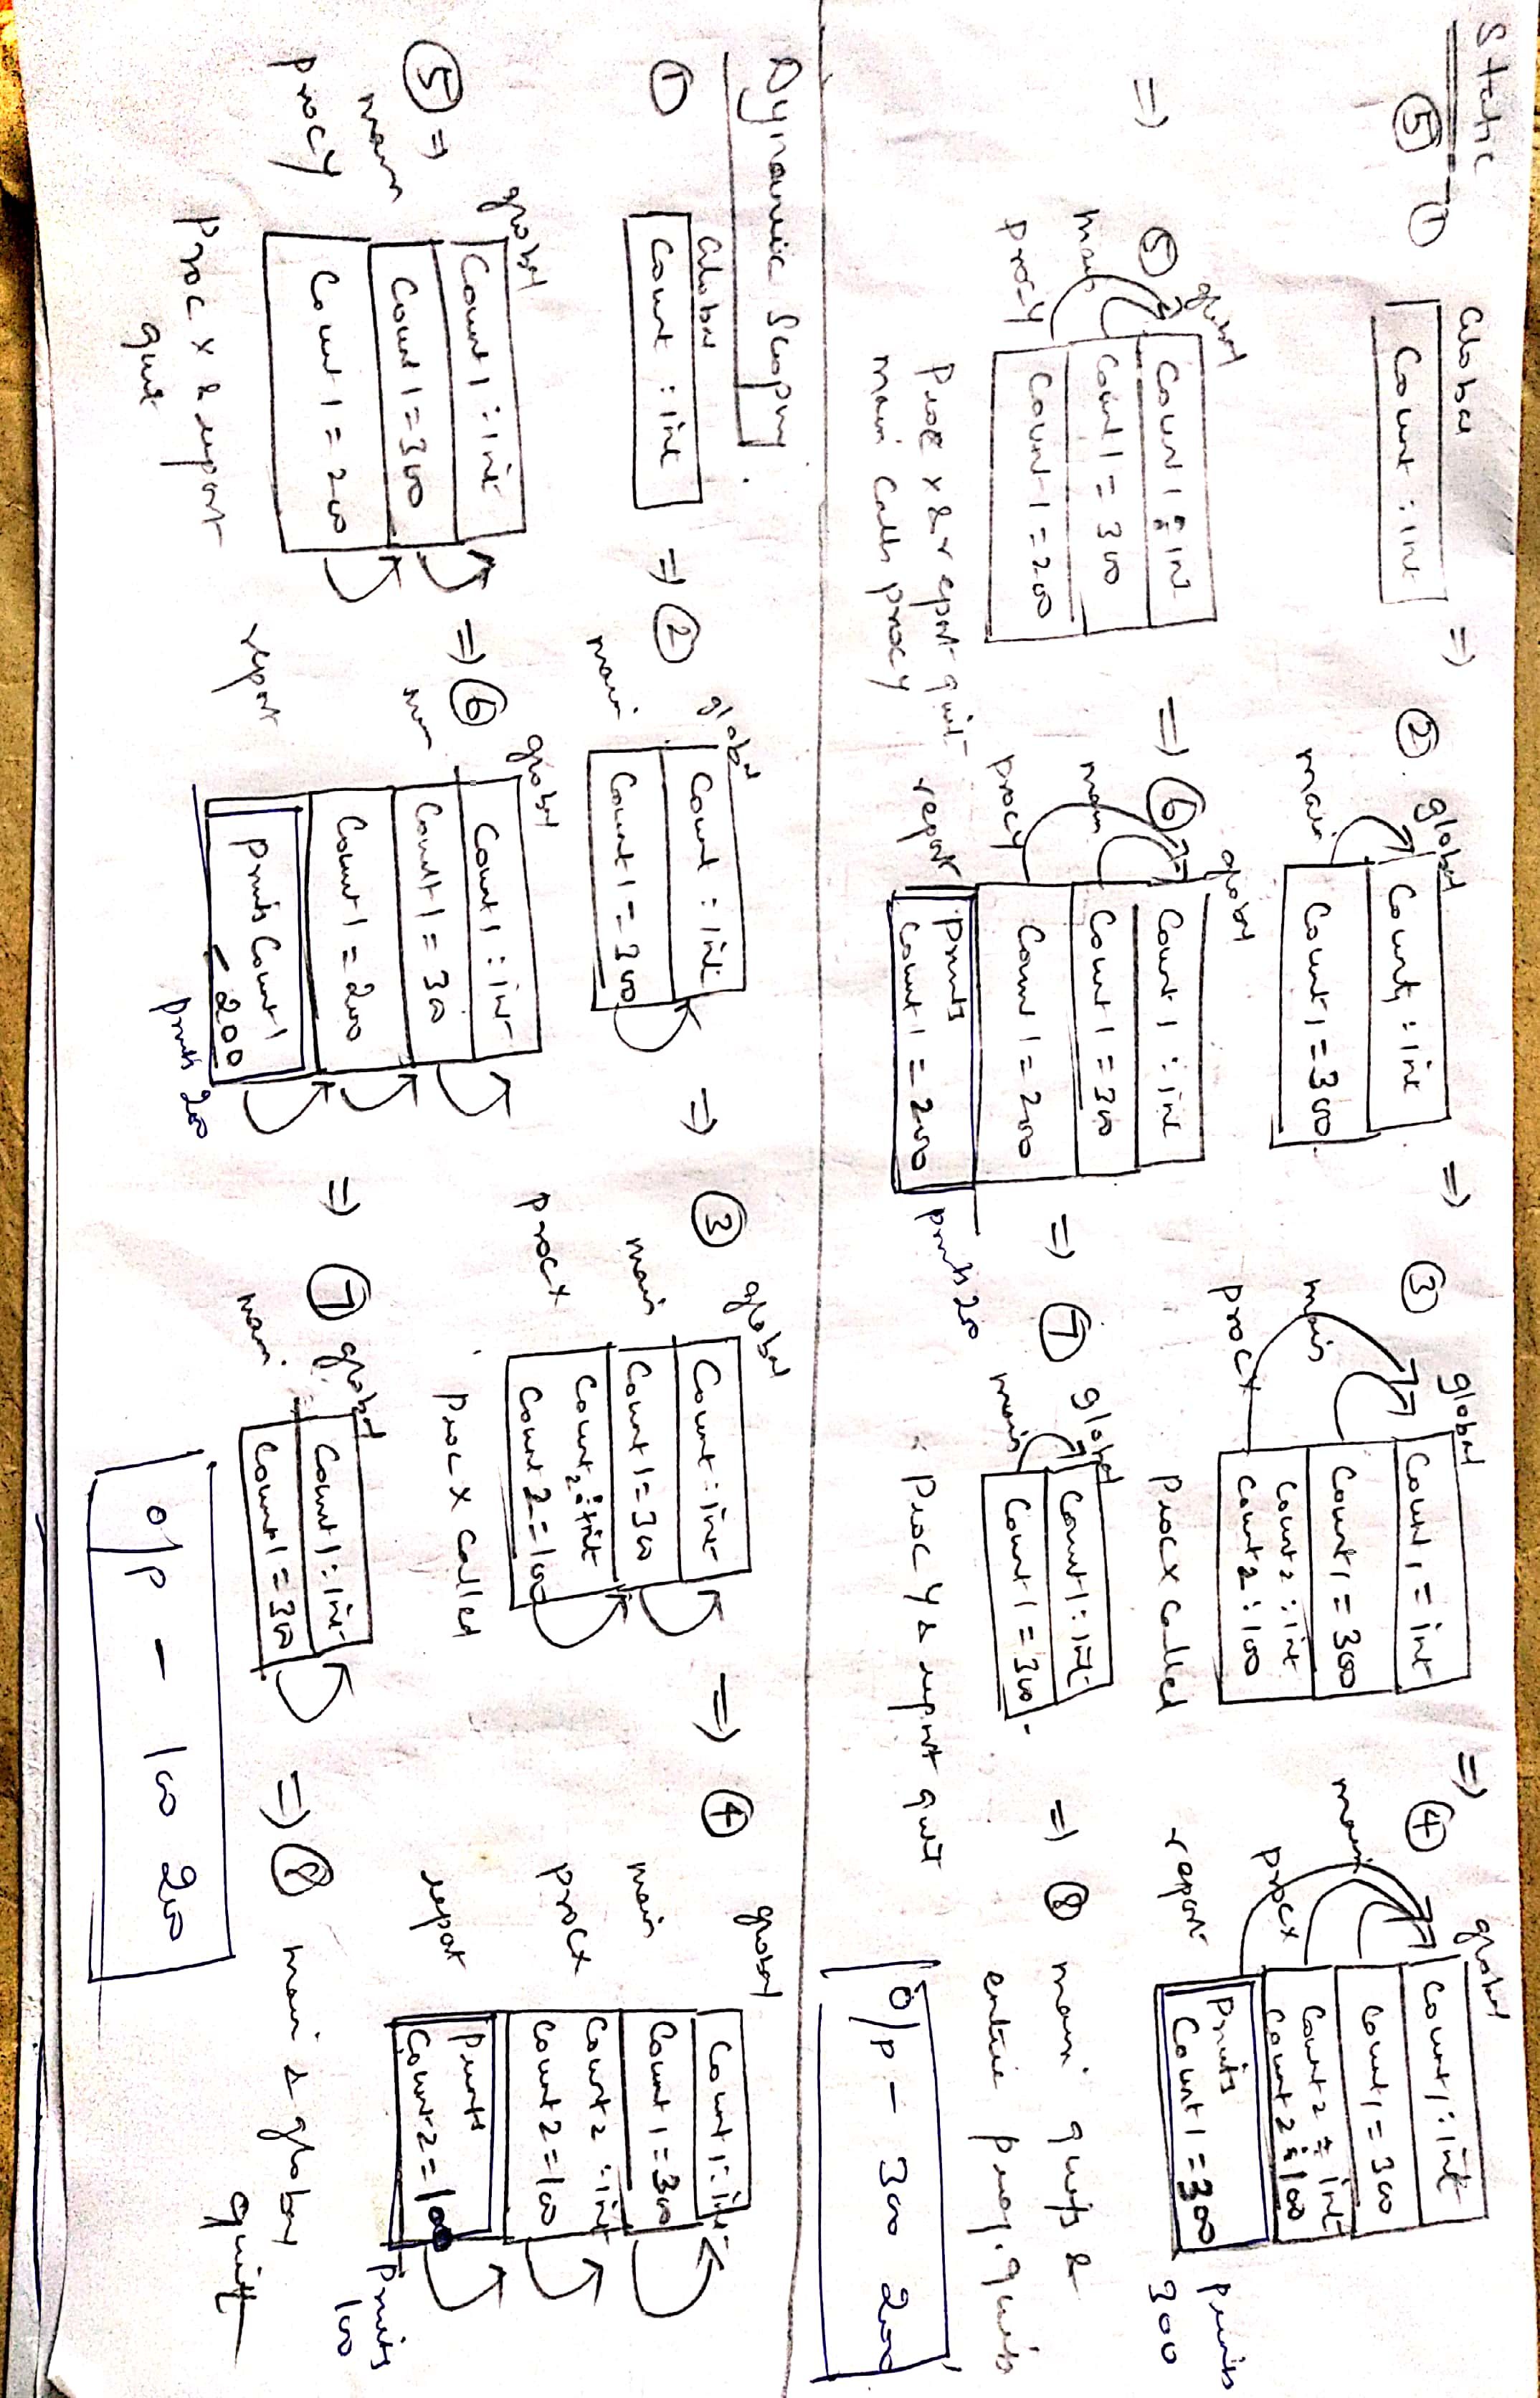 Static
5 ① Global
Count : int
⇒ ② global
main
Count1 : int
Count1 = 300
⇒ ③ global
main
procx
Count1 = int
Count1 = 300
Count2 : int
Count2 : 100
Proc x called
⇒ ④ global
main
procx
report
Count1 : int
Count1 = 300
Count2 : int
Count2 : 100
Prints
Count1 = 300
prints
300
⇒ ⑤ global
main
procy
Count1 : int
Count1 = 300
Count1 = 200
Proc x & report quit
main calls procy
⇒ ⑥ global
main
procy
report
Count1 : int
Count1 = 300
Count1 = 200
prints
Count1 = 200
prints 200
⇒ ⑦ global
main
Count1 : int
Count1 = 300
Proc y & report quit
⇒ ⑧ main quits &
entire prog. quits
O/p - 300 200
Dynamic Scoping
① Global
Count : int
⇒ ② global
main
Count : int
Count1 = 300
⇒ ③ global
main
procx
Count : int
Count1 = 300
Count2 : int
Count2 = 100
Proc x called
⇒ ④ global
main
procx
report
Count1 : int
Count1 = 300
Count2 : int
Count2 = 100
Prints
Count2 = 100
Prints
100
⑤ ⇒ global
main
procy
Count1 : int
Count1 = 300
Count1 = 200
Proc x & report
quit
⇒ ⑥ global
report
Count1 : int
Count1 = 300
Count1 = 200
Prints Count1
= 200
prints 200
⇒ ⑦ global
main
Count1 : int
Count1 = 300
⇒ ⑧ main & global
quit
o/p - 100 200